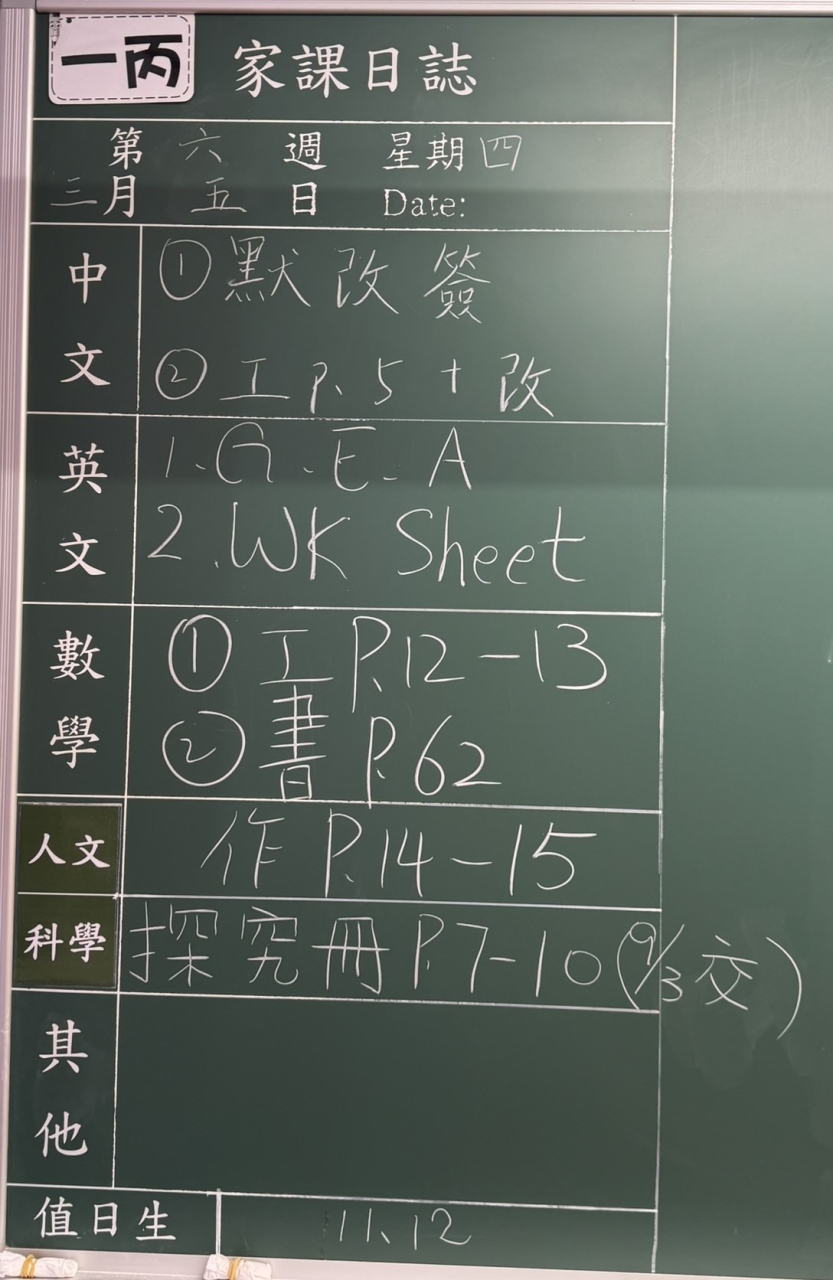 一丙 家課日誌
第 六 週 星期 四
三月 五 日 Date:
中文
① 默 改 簽
② 工 P. 5 + 改
英文
1. G. E. A
2. WK Sheet
數學
① 工 P.12-13
② 書 P.62
人文 作 P.14-15
科學 探 究 冊 P.7-10 (9/3 交)
其他
值日生 11、12